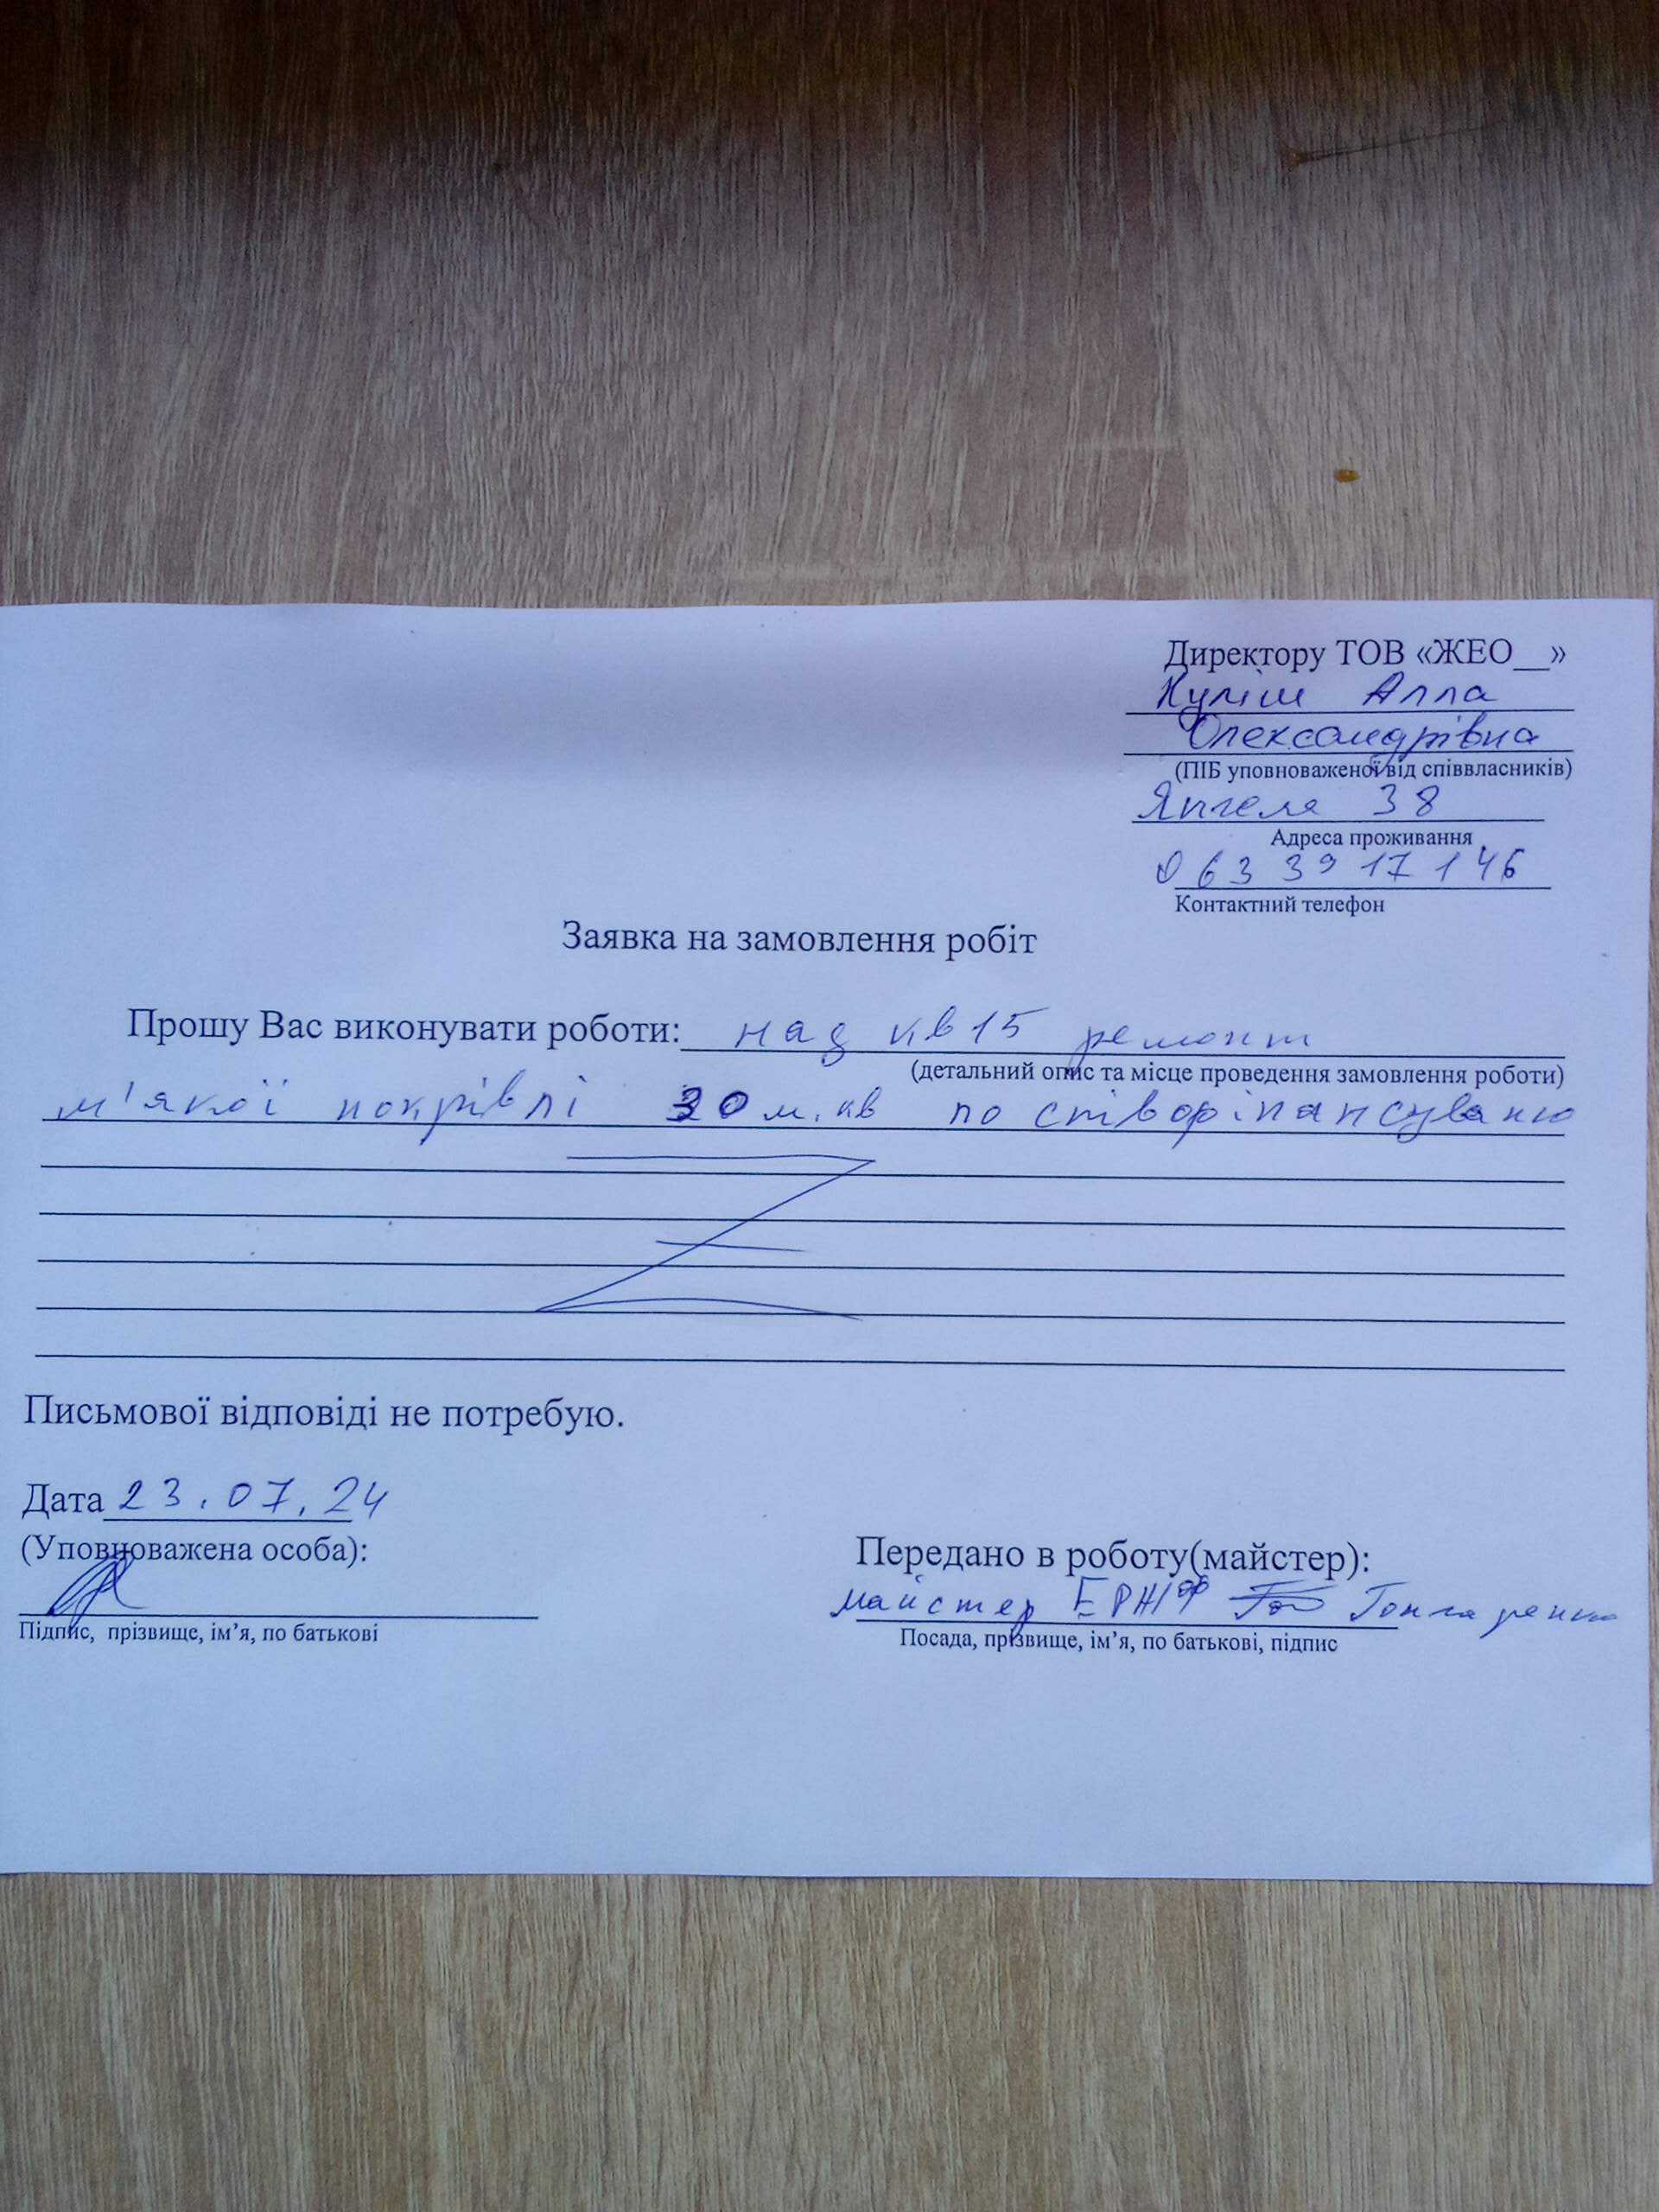 Директору ТОВ «ЖЕО__»
Куліш Алла
Олександрівна
(ПІБ уповноваженої від співвласників)
Янгеля 38
Адреса проживання
063 39 17 146
Контактний телефон
Заявка на замовлення робіт
Прошу Вас виконувати роботи: над кв 15 ремонт
(детальний опис та місце проведення замовлення роботи)
м'якої покрівлі 30 м.кв по співфінансуваню
Письмової відповіді не потребую.
Дата 23.07.24
(Уповноважена особа):
Підпис, прізвище, ім’я, по батькові
Передано в роботу(майстер):
майстер ЕРЖФ Гончаренко
Посада, прізвище, ім’я, по батькові, підпис